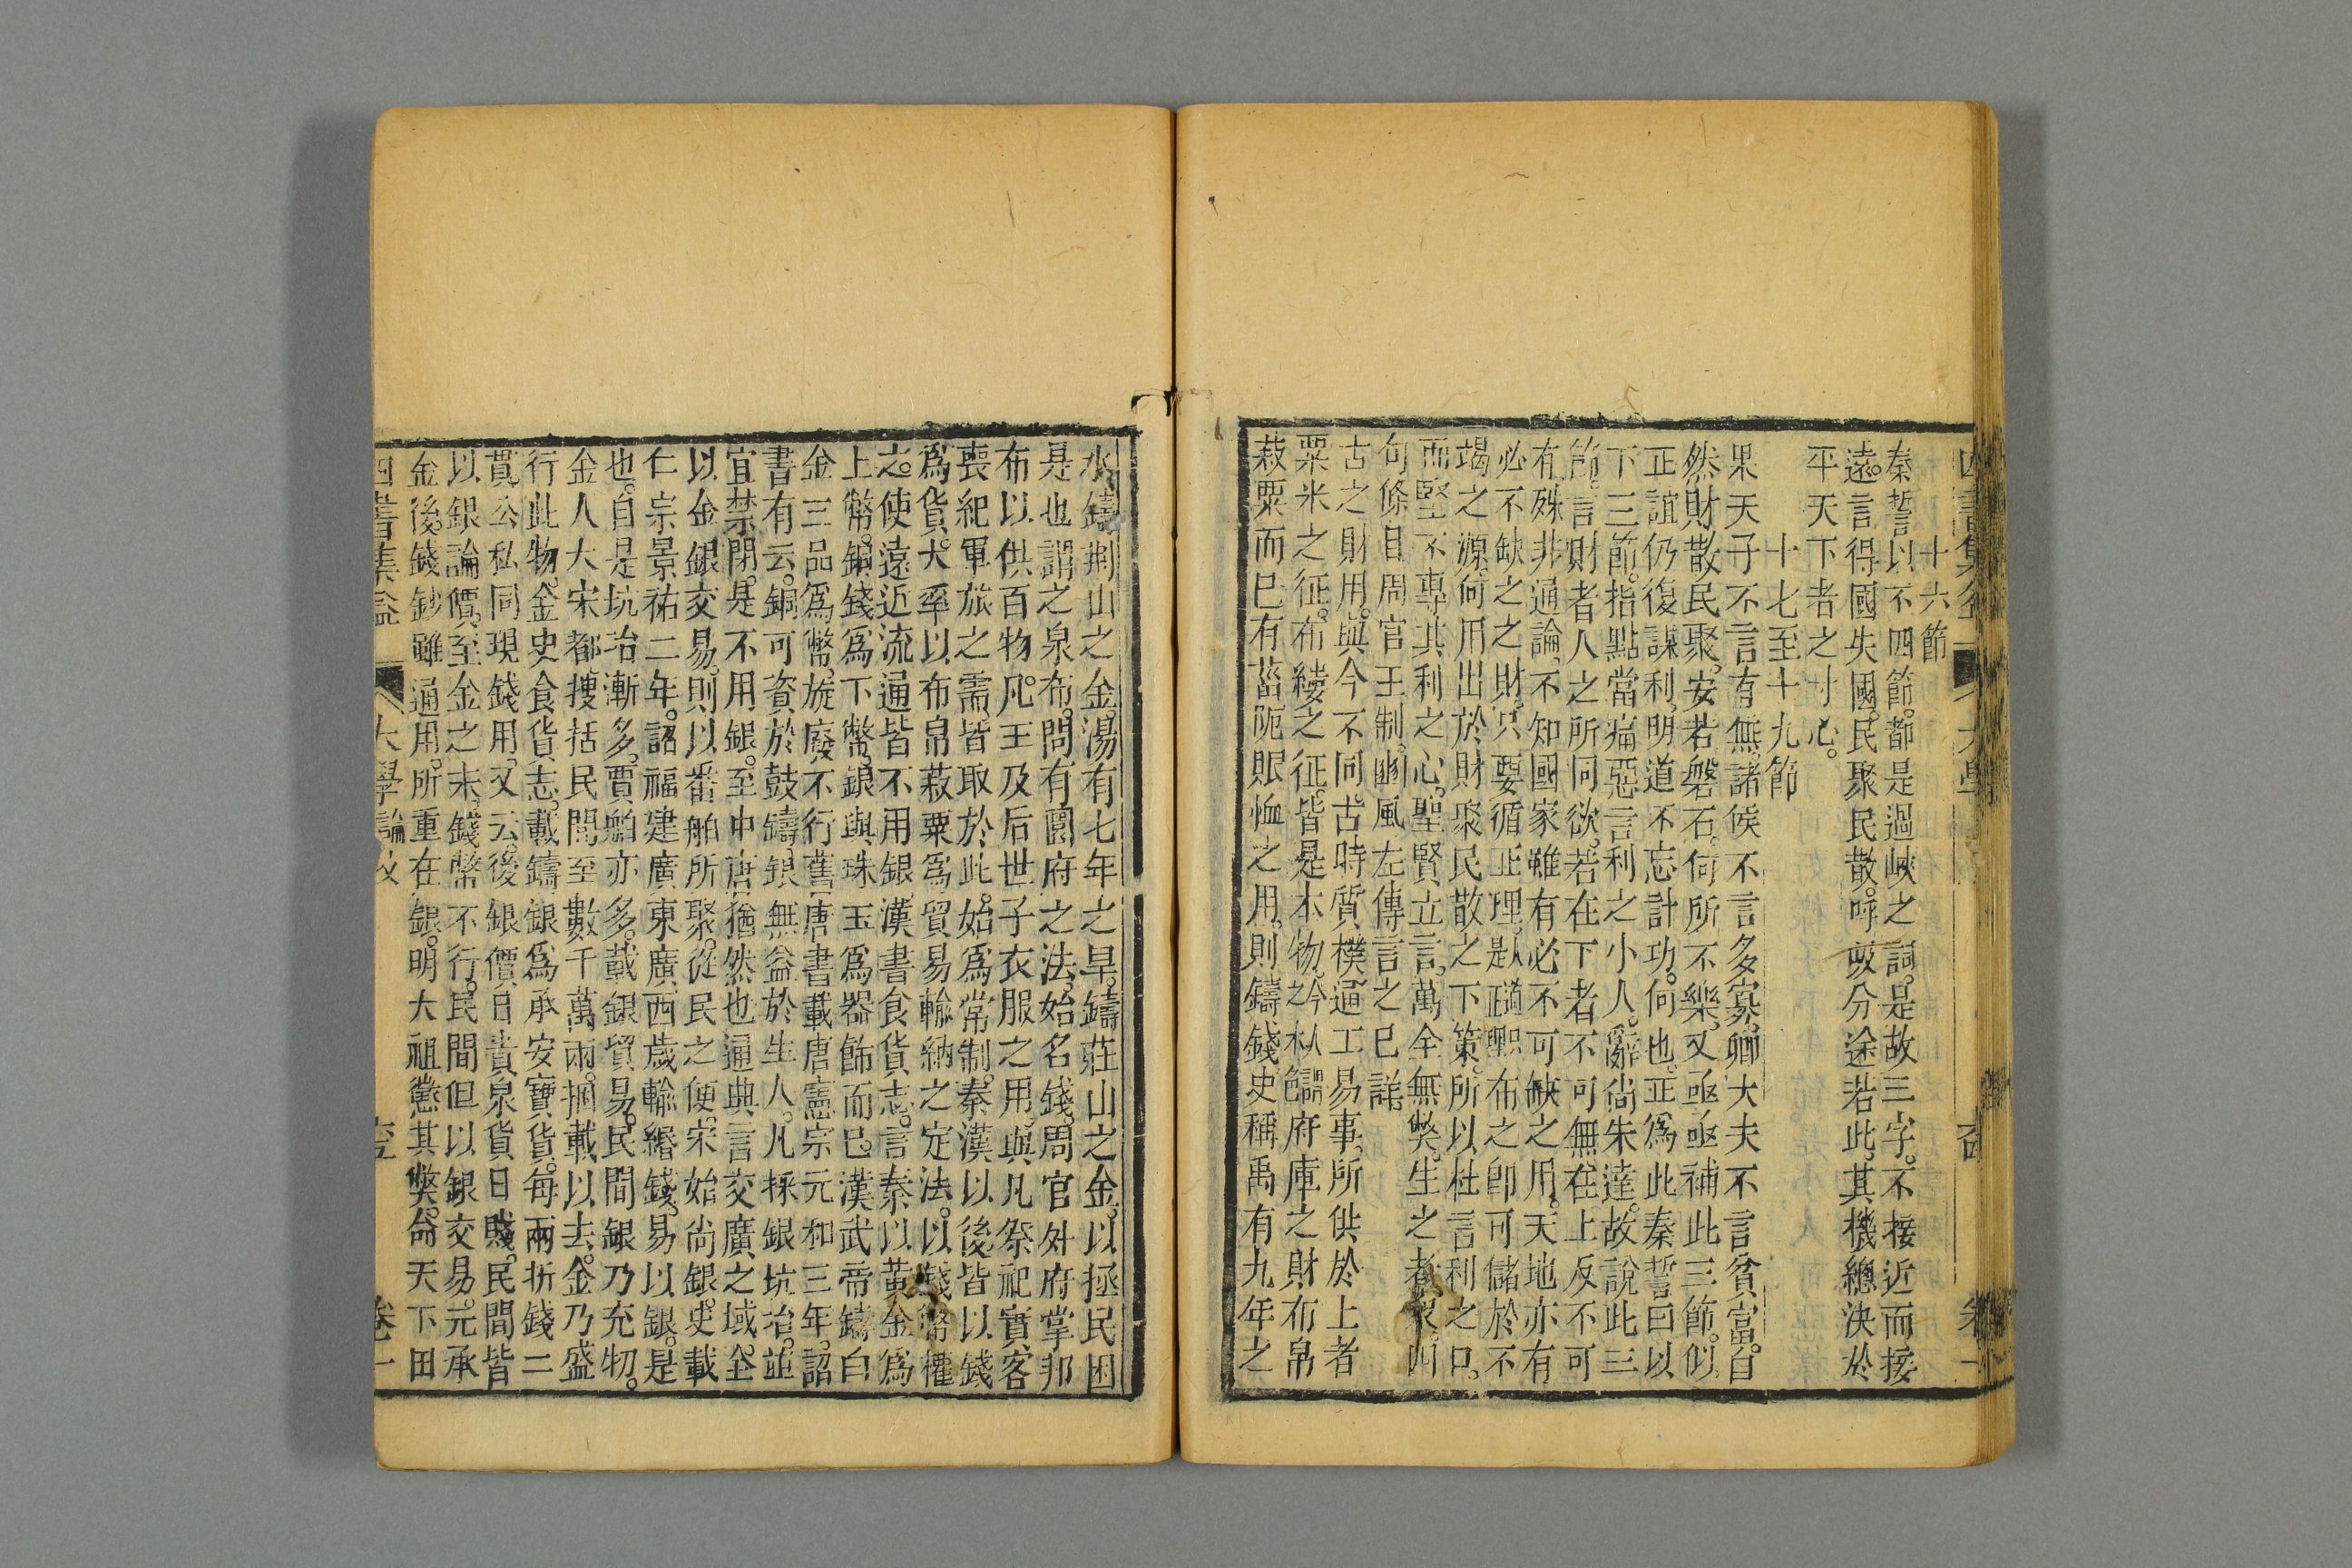 十六節
秦誓以下四節。都是過峽之詞。是故三字。不接近而接
遠。言得國失國。民聚民散。呼吸分途若此。其機總決於
平天下者之寸心。
十七至十九節
果天子不言有無。諸侯不言多寡。卿大夫不言貧富。自
然財散民聚。安若磐石。何所不樂。又亟亟補此三節。似
正誼仍復謀利。明道不忘計功。何也。正爲此秦誓曰以
下三節。指點當痛惡言利之小人。辭尙朱達。故說此三
節。言財者人之所同欲。若在下者不可無。在上反不可
有。殊非通論。不知國家雖有必不可缺之用。天地亦有
必不缺之之財。只要循正理。 布之卽可儲於不
竭之源。何用出於財聚民散之下策。所以杜言利之口。
而堅不專其利之心。聖賢立言。萬全無獘。生之者衆。四
句條目周官王制。豳風左傳言之已詳
古之財用。與今不同。古時質樸通工易事。所供於上者
粟米之征。布縷之征。皆是本物。 府庫之財布帛
菽粟而已有菑阨賑恤之用。則鑄錢史稱禹有九年之
水鑄荆山之金。湯有七年之旱。鑄莊山之金。以拯民困
是也謂之泉布。問有圜府之法。始名錢。周官外府掌邦
布以供百物。凡王及后世子衣服之用。與凡祭祀賓客
喪紀軍旅之需。皆取於此。始爲常制。秦漢以後皆以錢
爲貨。大率以布帛菽粟爲貿易輸納之定法。以錢幣權
之。使遠近流通皆不用銀。漢書食貨志。言秦以黃金爲
上幣。銅錢爲下幣。銀與珠玉爲器飾而已。漢武帝鑄白
金三品爲幣。旋廢不行。舊唐書載唐憲宗元和三年。詔
書有云。銅可資於鼓鑄。銀無益於生人。凡採銀坑冶。並
宜禁閉。是不用銀。至中唐猶然也通典言交廣之域。全
以金銀交易。則以番舶所聚。從民之便。宋始尙銀。史載
仁宗景祐二年。詔福建廣東廣西歲輸緡錢。易以銀。是
也。自是坑冶漸多。賈舶亦多。載銀貿易。民間銀乃充牣。
金人大宋都。搜括民間至數千萬兩。捆載以去。金乃盛
行此物。金史食貨志。載鑄銀爲承安寶貨。每兩折錢二
貫公私同現錢用。又云。後銀價日貴泉貨日賤。民間皆
以銀論價。至金之末。錢幣不行。民間但以銀交易。元承
金後。錢鈔雖通用。所重在銀。明大祖懲其獘。命天下田
四書集益 大學論文 卷一